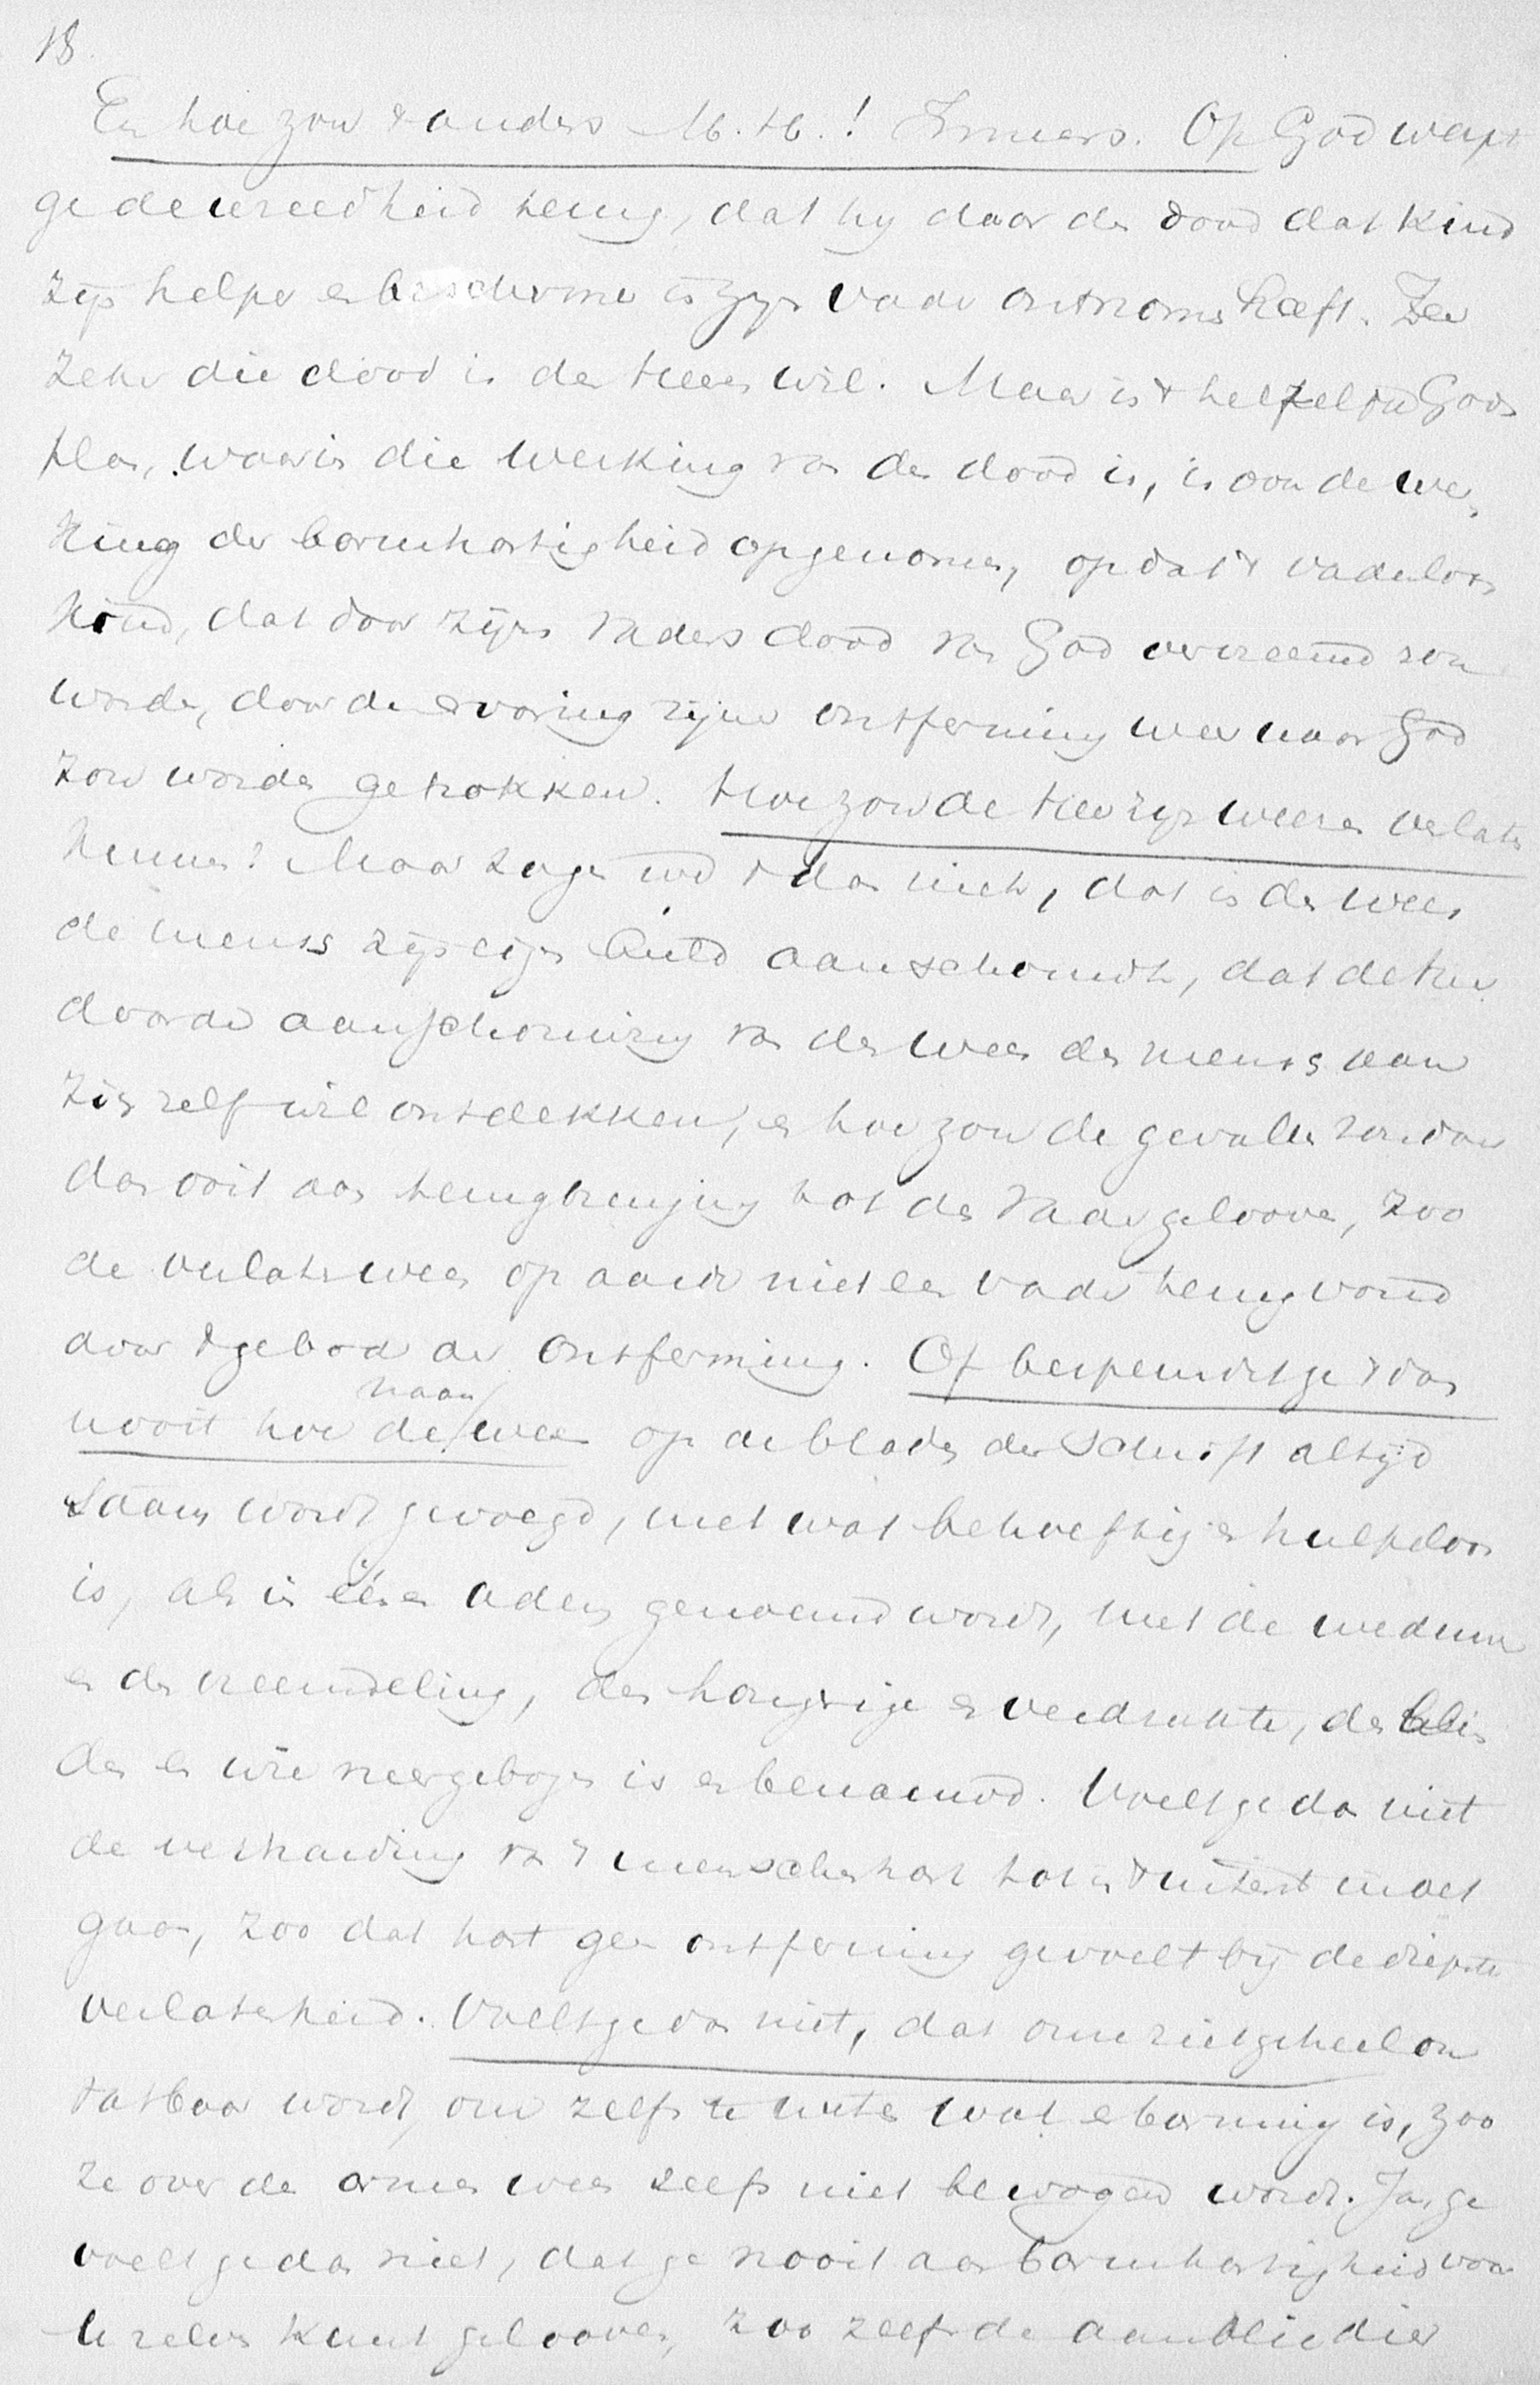 18.
En hoe zou 't anders M. H.! Immers. Op God werpt
ge de wreedheid terug, dat hij door den dood dat kind
zijn helper en beschermer in zijn vader ontnomen heeft. Zeer
zeker die dood is des Heeren wil. Maar in 't helfzelfde Gods
plan, waarin die werking van den dood is, is ook de wer-
king der barmhartigheid opgenomen, opdat 't vaderloos
kind, dat door zijns vaders dood van God vervreemd zou
worden, door de ervaring zijner ontferming weer naar God
zou worden getrokken. Hoe zou de Heer zijn weezen verlaten
kunnen? Maar zagen we 't dan niet, dat in den wees
de mensch zijn eigen beeld aanschouwt, dat de Heer
door de aanschouwing van den wees den mensch aan
zich zelf wil ontdekken, en hoe zou de gevallen zondaar
dan ooit aan terugbrenging tot den Vader gelooven, zoo
de verlaten wees op aarde niet een vader terugvond
door 't gebod der ontferming. Of bespeurdet ge 't dan
nooit hoe de naam wees op de bladen der Schrift altijd
saam wordt gevoegd, met wat behoeftig en hulpeloos
is, als in éénen adem genoemd wordt, met de weduw
en den vreemdeling, den hongrige en verdrukte, den blin
den en wie neergebogen is en benauwd. Voelt ge dan niet
de verharding van 't menschenhart tot in 't uiterst moet
gaan, zoo dat hart geen ontferming gevoelt bij de diepste
verlatenheid. Voelt ge dan niet, dat onze ziel geheel on
vatbaar wordt, om zelfs te weten wat erbarming is, zoo
ze over de armen wees zelfs niet bewogen wordt. Ja, ge
voelt ge dan niet, dat ge nooit aan barmhartigheid voor
u zelven kunt gelooven, zoo zelfs de aanblik dier